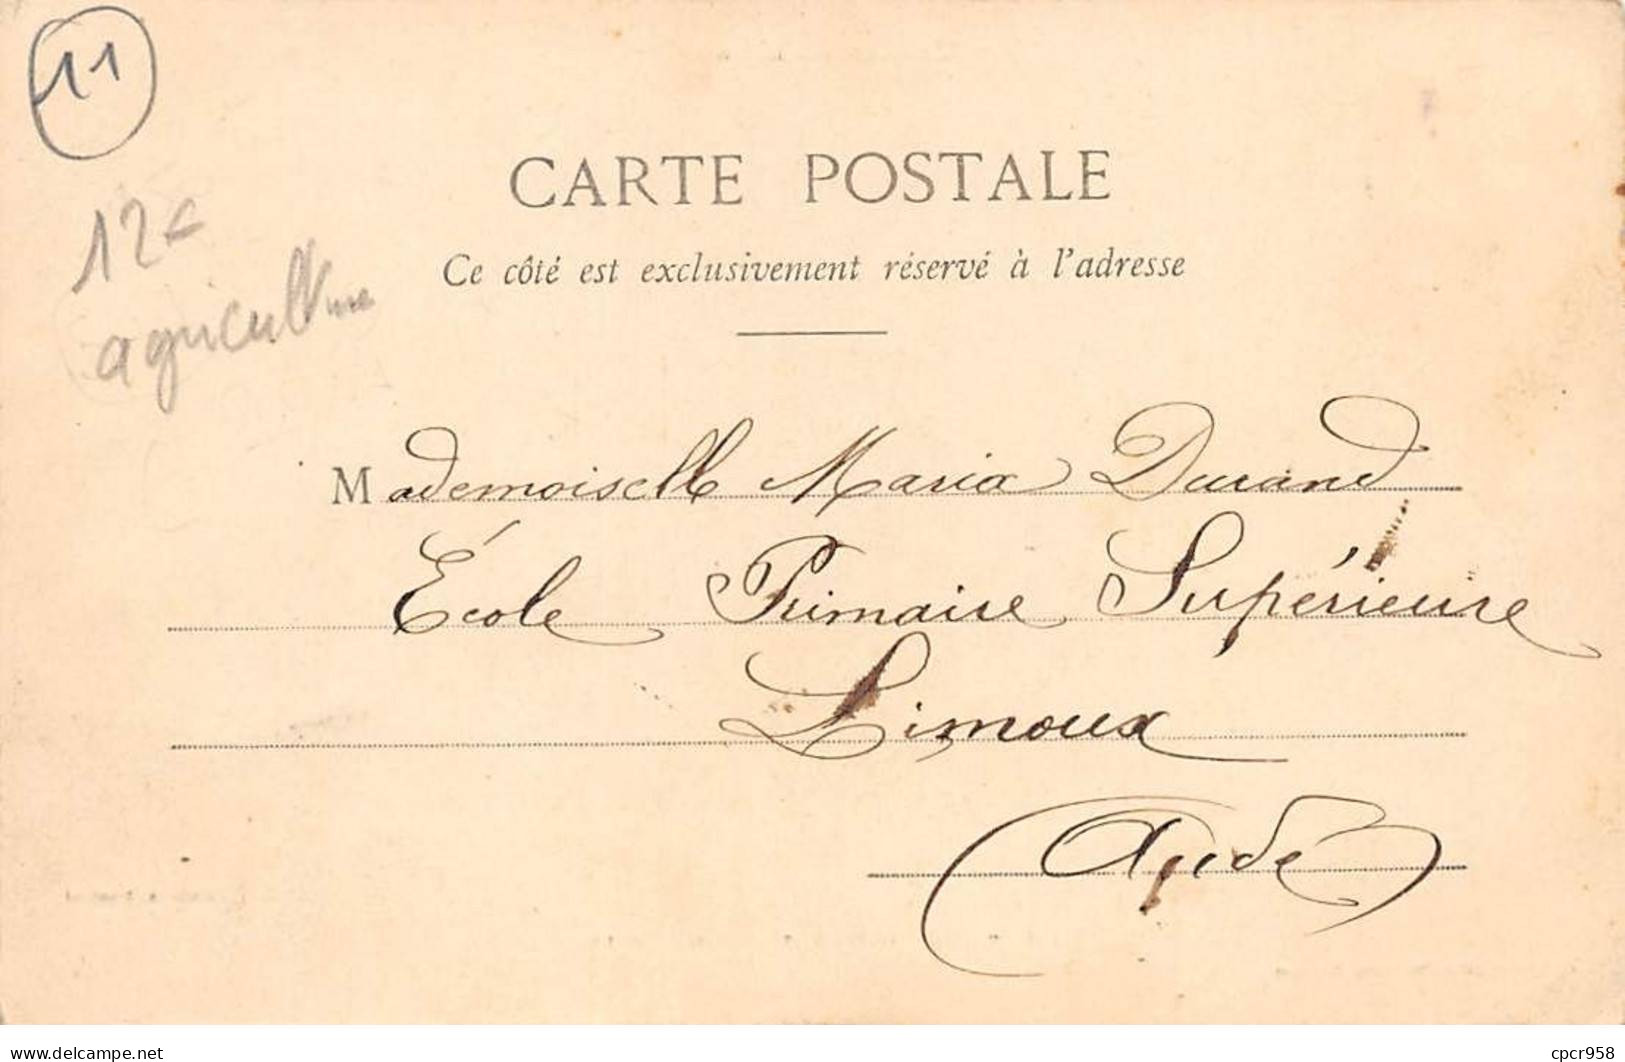 11
12€
agriculture
CARTE POSTALE
Ce côté est exclusivement réservé à l'adresse
Mademoiselle Maria Durand
École Primaire Supérieure
Limoux
(Aude)
delcampe.net
cpcr958